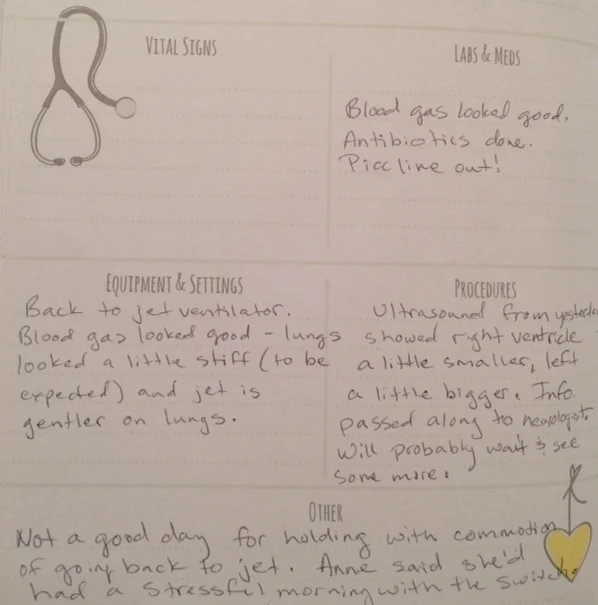 VITAL SIGNS
LABS & MEDS
Blood gas looked good.
Antibiotics done.
Picc line out!
EQUIPMENT & SETTINGS
Back to jet ventilator.
Blood gas looked good - lungs
looked a little stiff (to be
expected) and jet is
gentler on lungs.
PROCEDURES
Ultrasound from yesterday
showed right ventricle
a little smaller, left
a little bigger. Info
passed along to neurologist.
Will probably wait & see
some more.
OTHER
Not a good day for holding with commotion
of going back to jet. Anne said she'd
had a stressful morning with the switch